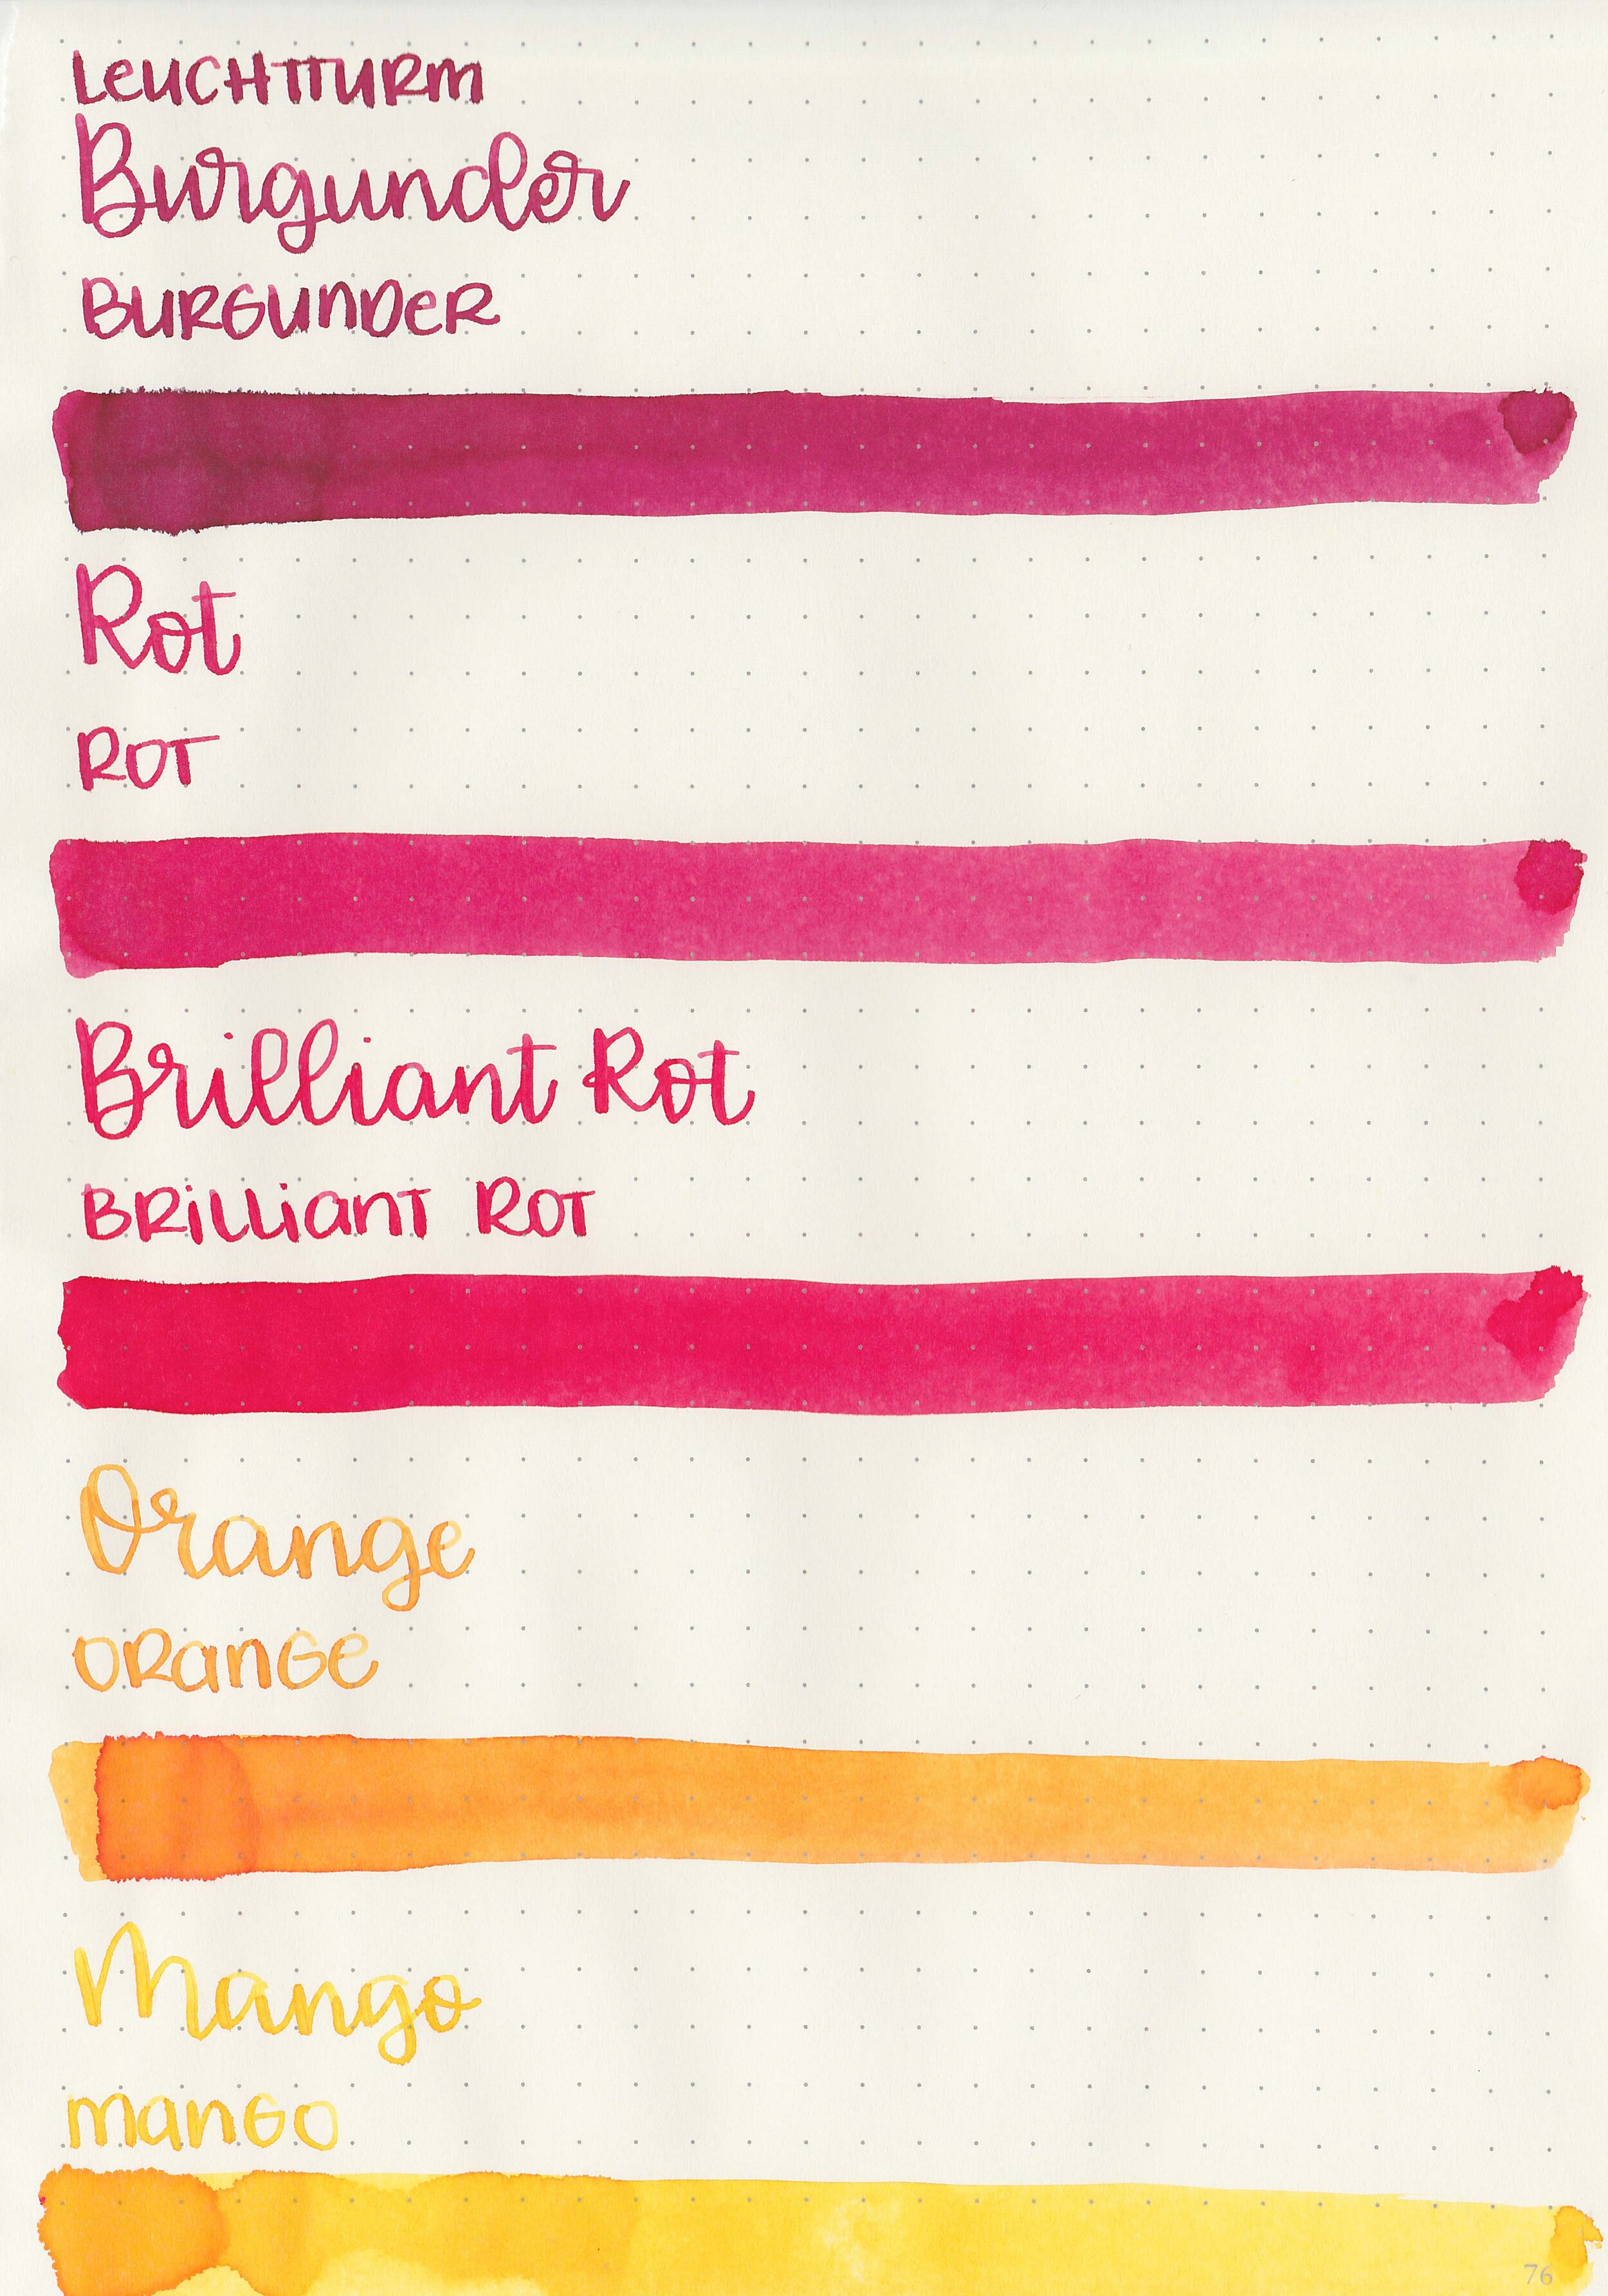 LEUCHTTURM
Burgunder
BURGUNDER
Rot
ROT
Brilliant Rot
BRILLIANT ROT
Orange
ORANGE
Mango
MANGO
76